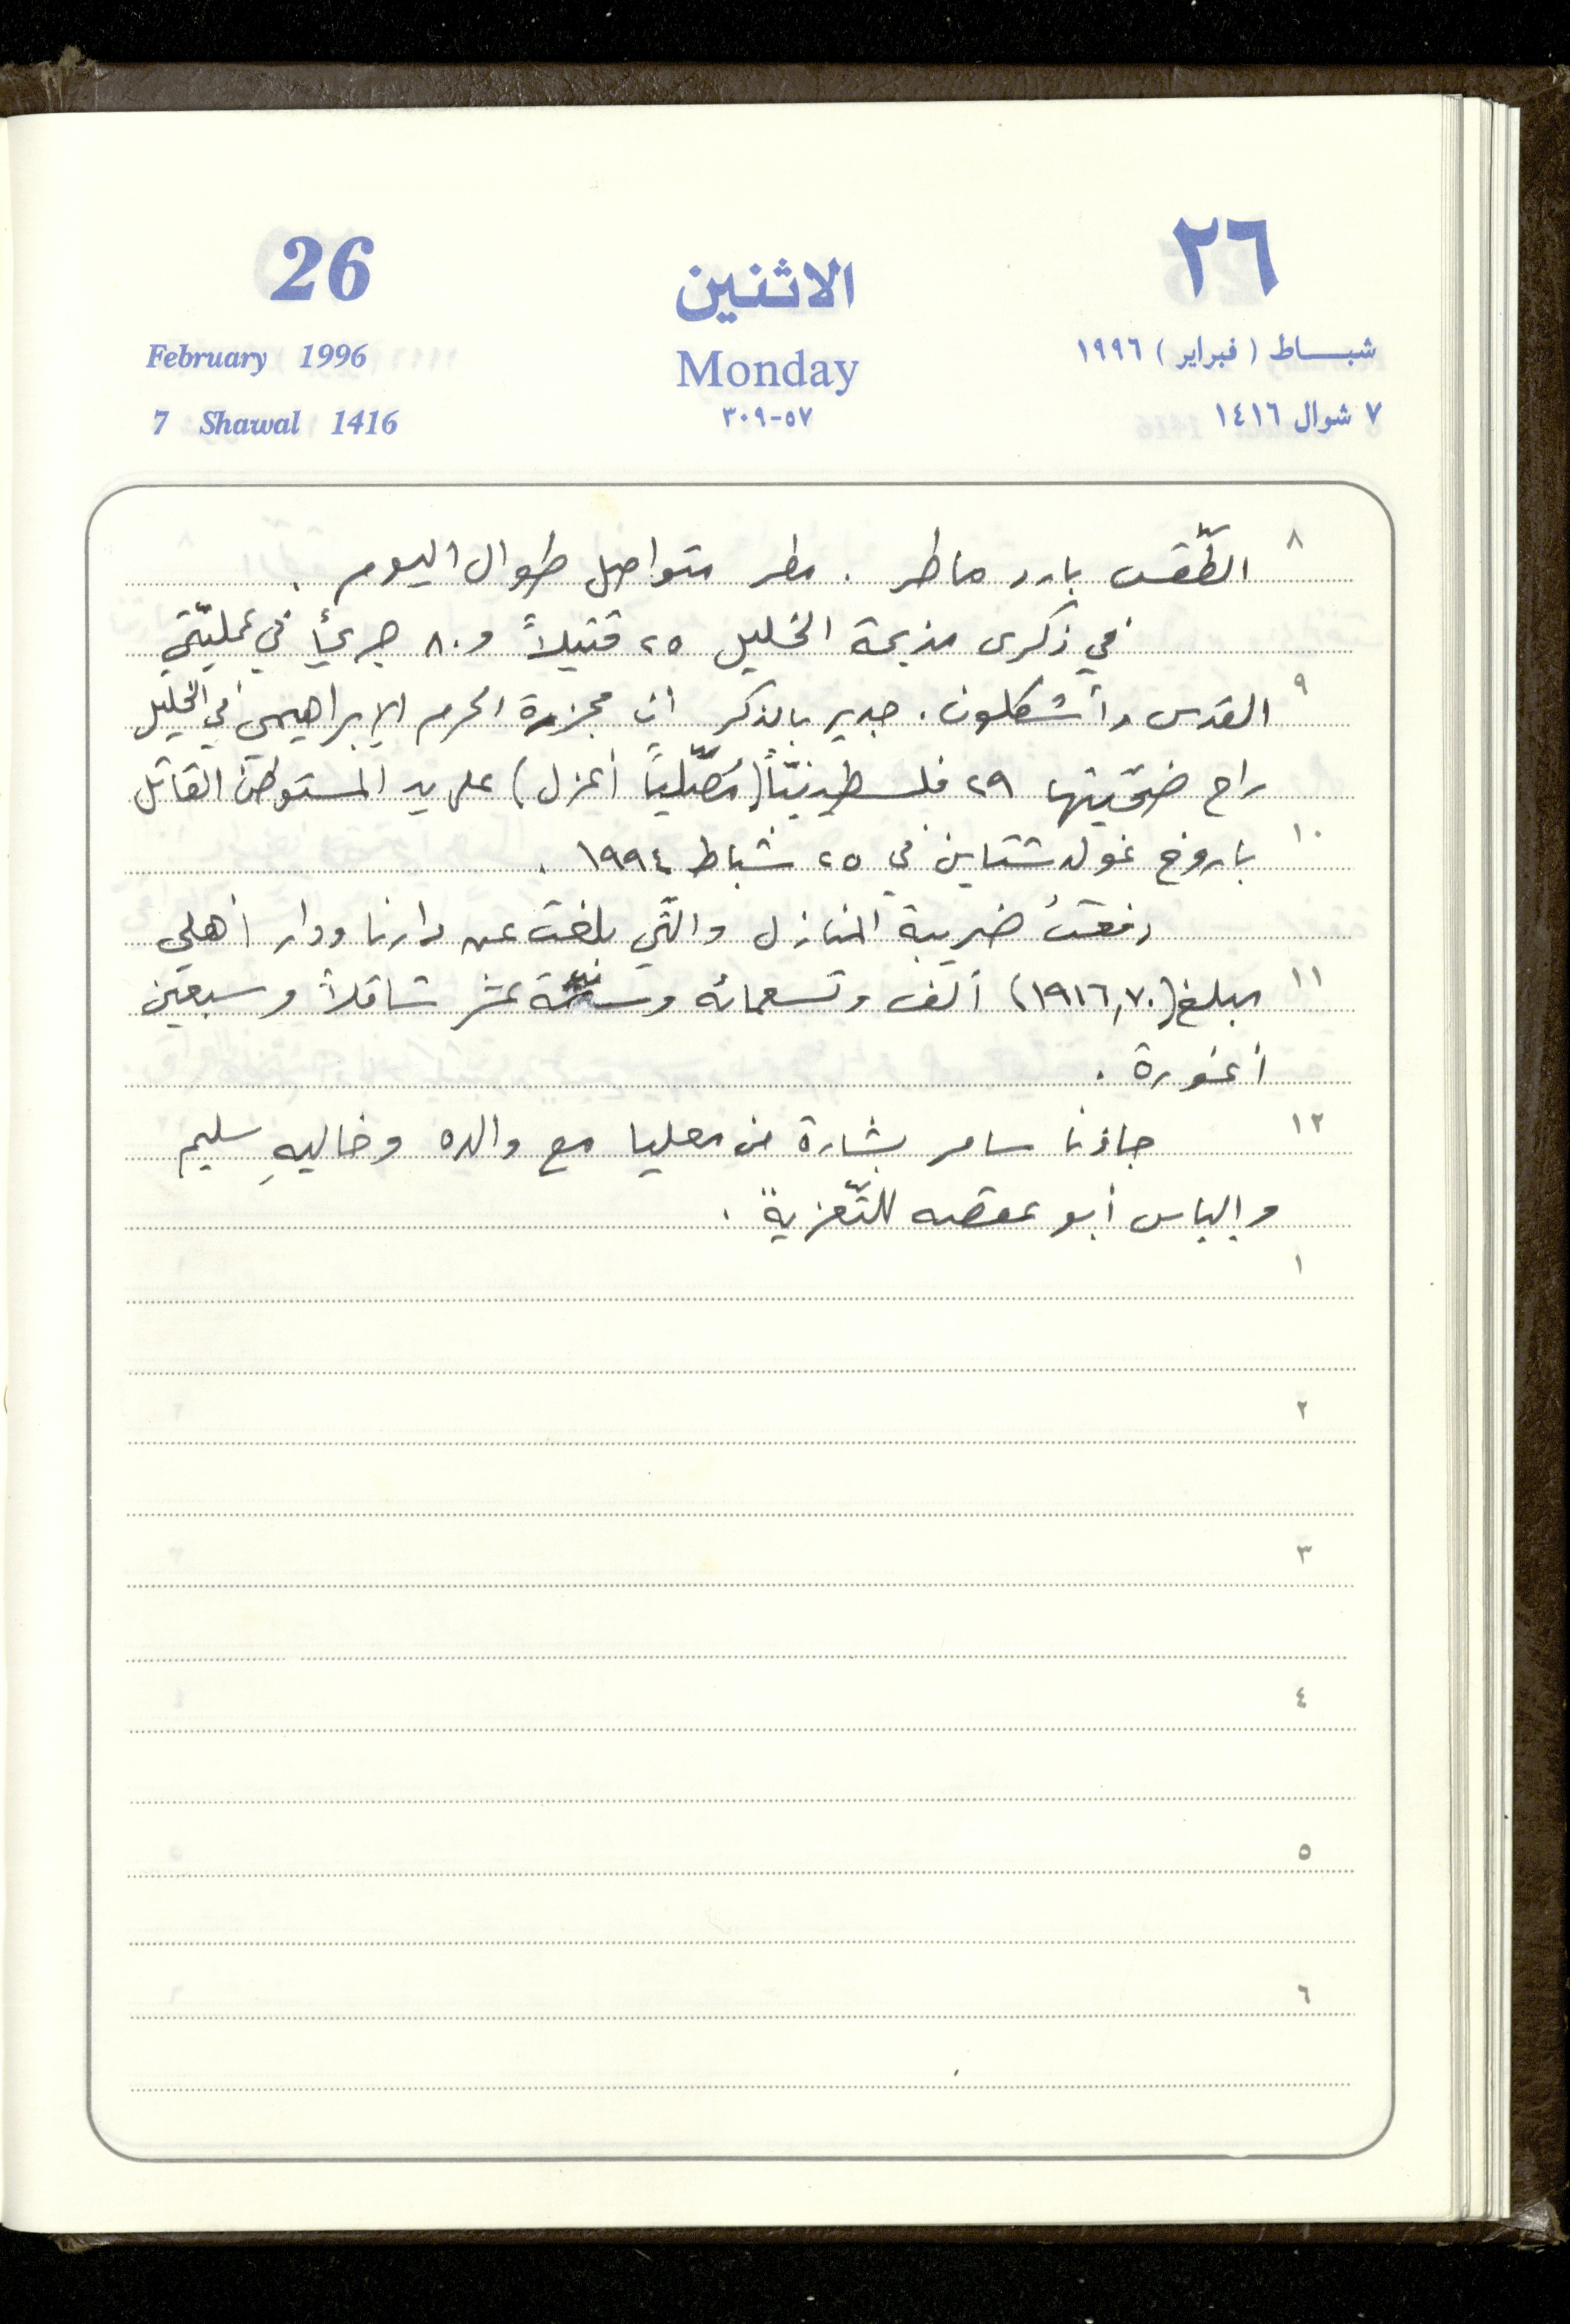 26
February 1996
7 Shawal 1416
الاثنين
Monday
٥٧-٣٠٩
٢٦
شبـــاط ( فبراير ) ١٩٩٦
٧ شوال ١٤١٦
٨
الطّقس بارد ماطر . مطر متواصل طوال اليوم .
في ذكرى مذبحة الخليل ٢٥ قتيلاً و ٨٠ جريحًا في عمليّتي
٩
القدس وأشكلون . جدير بالذكر أن مجزرة الحرم الإبراهيمي في الخليل
راح ضحّيتها ٢٩ فلسطينيّاً (مُصَلّياً أعزل) على يد المستوطن القاتل
١٠
باروخ غولدشتاين في ٢٥ شباط ١٩٩٤ .
دفعتُ ضريبة المنازل والّتي بلغت عن دارنا ودار أهلي
١١
مبلغ (١٩١٦,٧٠) ألف وتسعمائه وستة عشر شاقلاً وسبعين
أغورة .
١٢
جاؤنا سامر بشارة من معليا مع والده وخاليهِ سليم
وإلياس أبو عقصه للتّعزية .
١
٢
٣
٤
٥
٦